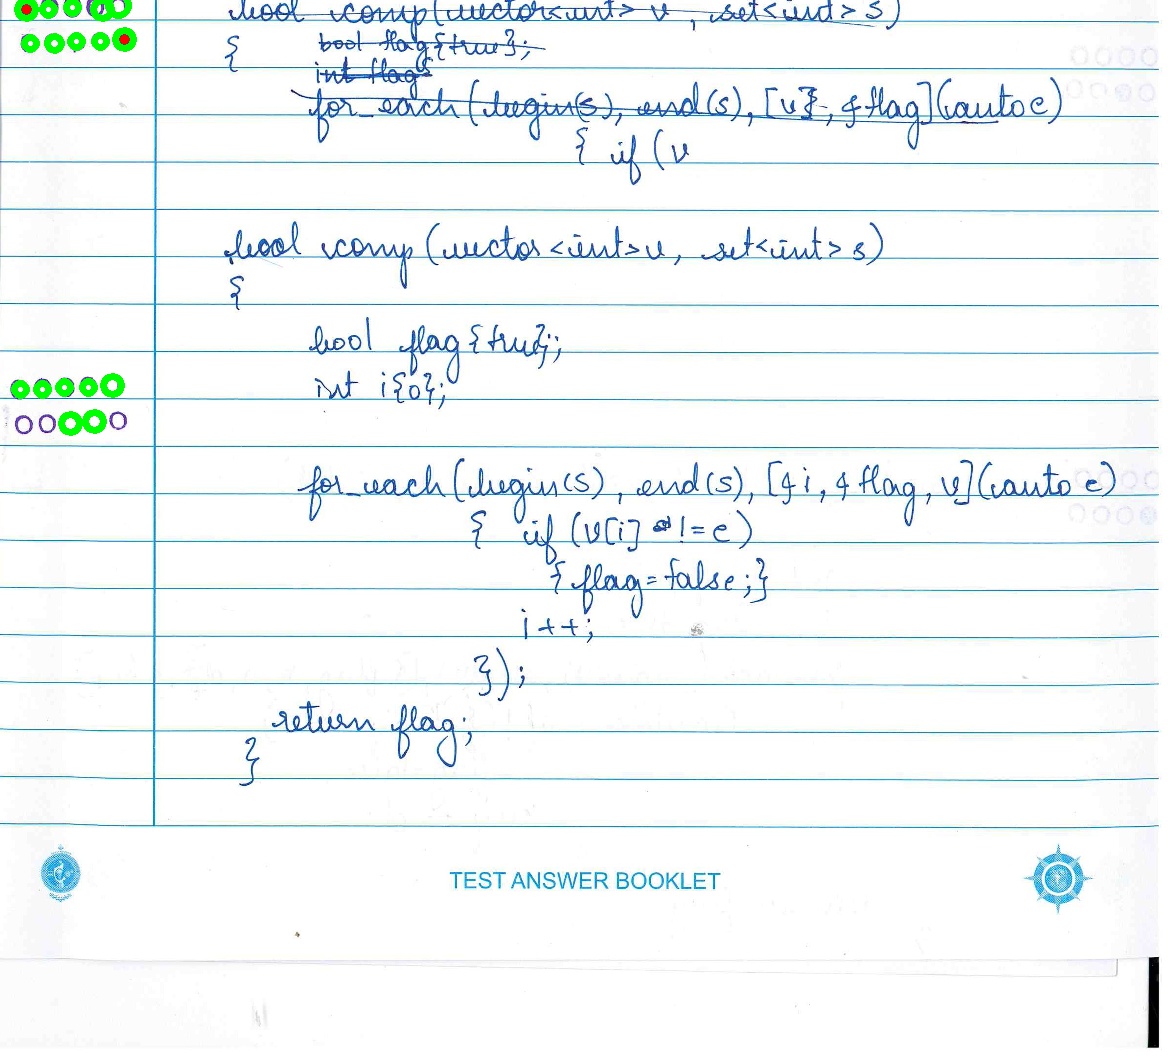 bool comp(vector<int> v, set<int> s)
{ bool flag{true};
int flag
for_each(begin(s), end(s), [v], &flag](auto e)
{ if (v
bool comp (vector<int>v, set<int> s)
{
bool flag{true};
int i{0};
for_each(begin(s), end(s), [&i, &flag, v](auto e)
{ if (v[i] != e)
{flag=false;}
i++;
});
return flag;
}
TEST ANSWER BOOKLET